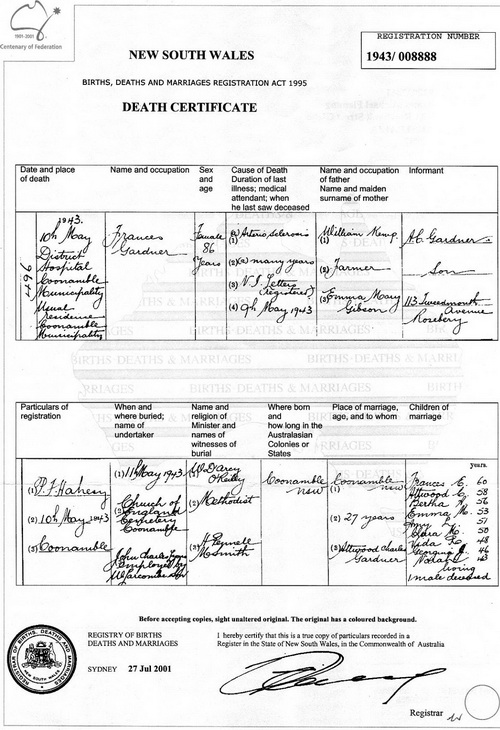 1901-2001
Centenary of Federation
NEW SOUTH WALES
REGISTRATION NUMBER
1943/ 008888
BIRTHS, DEATHS AND MARRIAGES REGISTRATION ACT 1995
DEATH CERTIFICATE
Date and place
of death
Name and occupation
Sex
and
age
Cause of Death
Duration of last
illness; medical
attendant; when
he last saw deceased
Name and occupation
of father
Name and maiden
surname of mother
Informant
4496
1943.
10th May
District
Hospital
Coonamble
Municipality
Usual
Residence
Coonamble
Municipality
Frances
Gardner
Female
86
Years
(1) (a) Arterio sclerosis
(2) (a) many years
(3) N. J. Letters
(registered)
(4) 9th May 1943
(1) William Kemp
(2) Farmer
(3) Emma Mary
Gibson
A.C. Gardner
Son
113 Tweedmouth
Avenue
Rosebery
Particulars of
registration
When and
where buried;
name of
undertaker
Name and
religion of
Minister and
names of
witnesses of
burial
Where born
and
how long in the
Australasian
Colonies or
States
Place of marriage,
age, and to whom
Children of
marriage
(1) P. F. Hahesy
(2) 10th May 1943
(3) Coonamble
(1) 11th May 1943
(2) Church of
England
Cemetery
Coonamble
John Charles
Employed by
W. Larcombe & Son
(1) W. Darcy
O'Reilly
(2) Methodist
(3) H. Fennell
M. Smith
Coonamble
NSW
(1) Coonamble
NSW
(2) 27 years
(3) Attwood Charles
Gardner
years.
Frances E. 60
Attwood C. 58
Bertha 56
Emma M. 53
Amy 51
Clara M. 50
Veda 48
Georgina J. 46
43
living
1 male deceased
Before accepting copies, sight unaltered original. The original has a coloured background.
REGISTRY OF BIRTHS
DEATHS AND MARRIAGES
SYDNEY 27 Jul 2001
I hereby certify that this is a true copy of particulars recorded in a
Register in the State of New South Wales, in the Commonwealth of Australia
Registrar